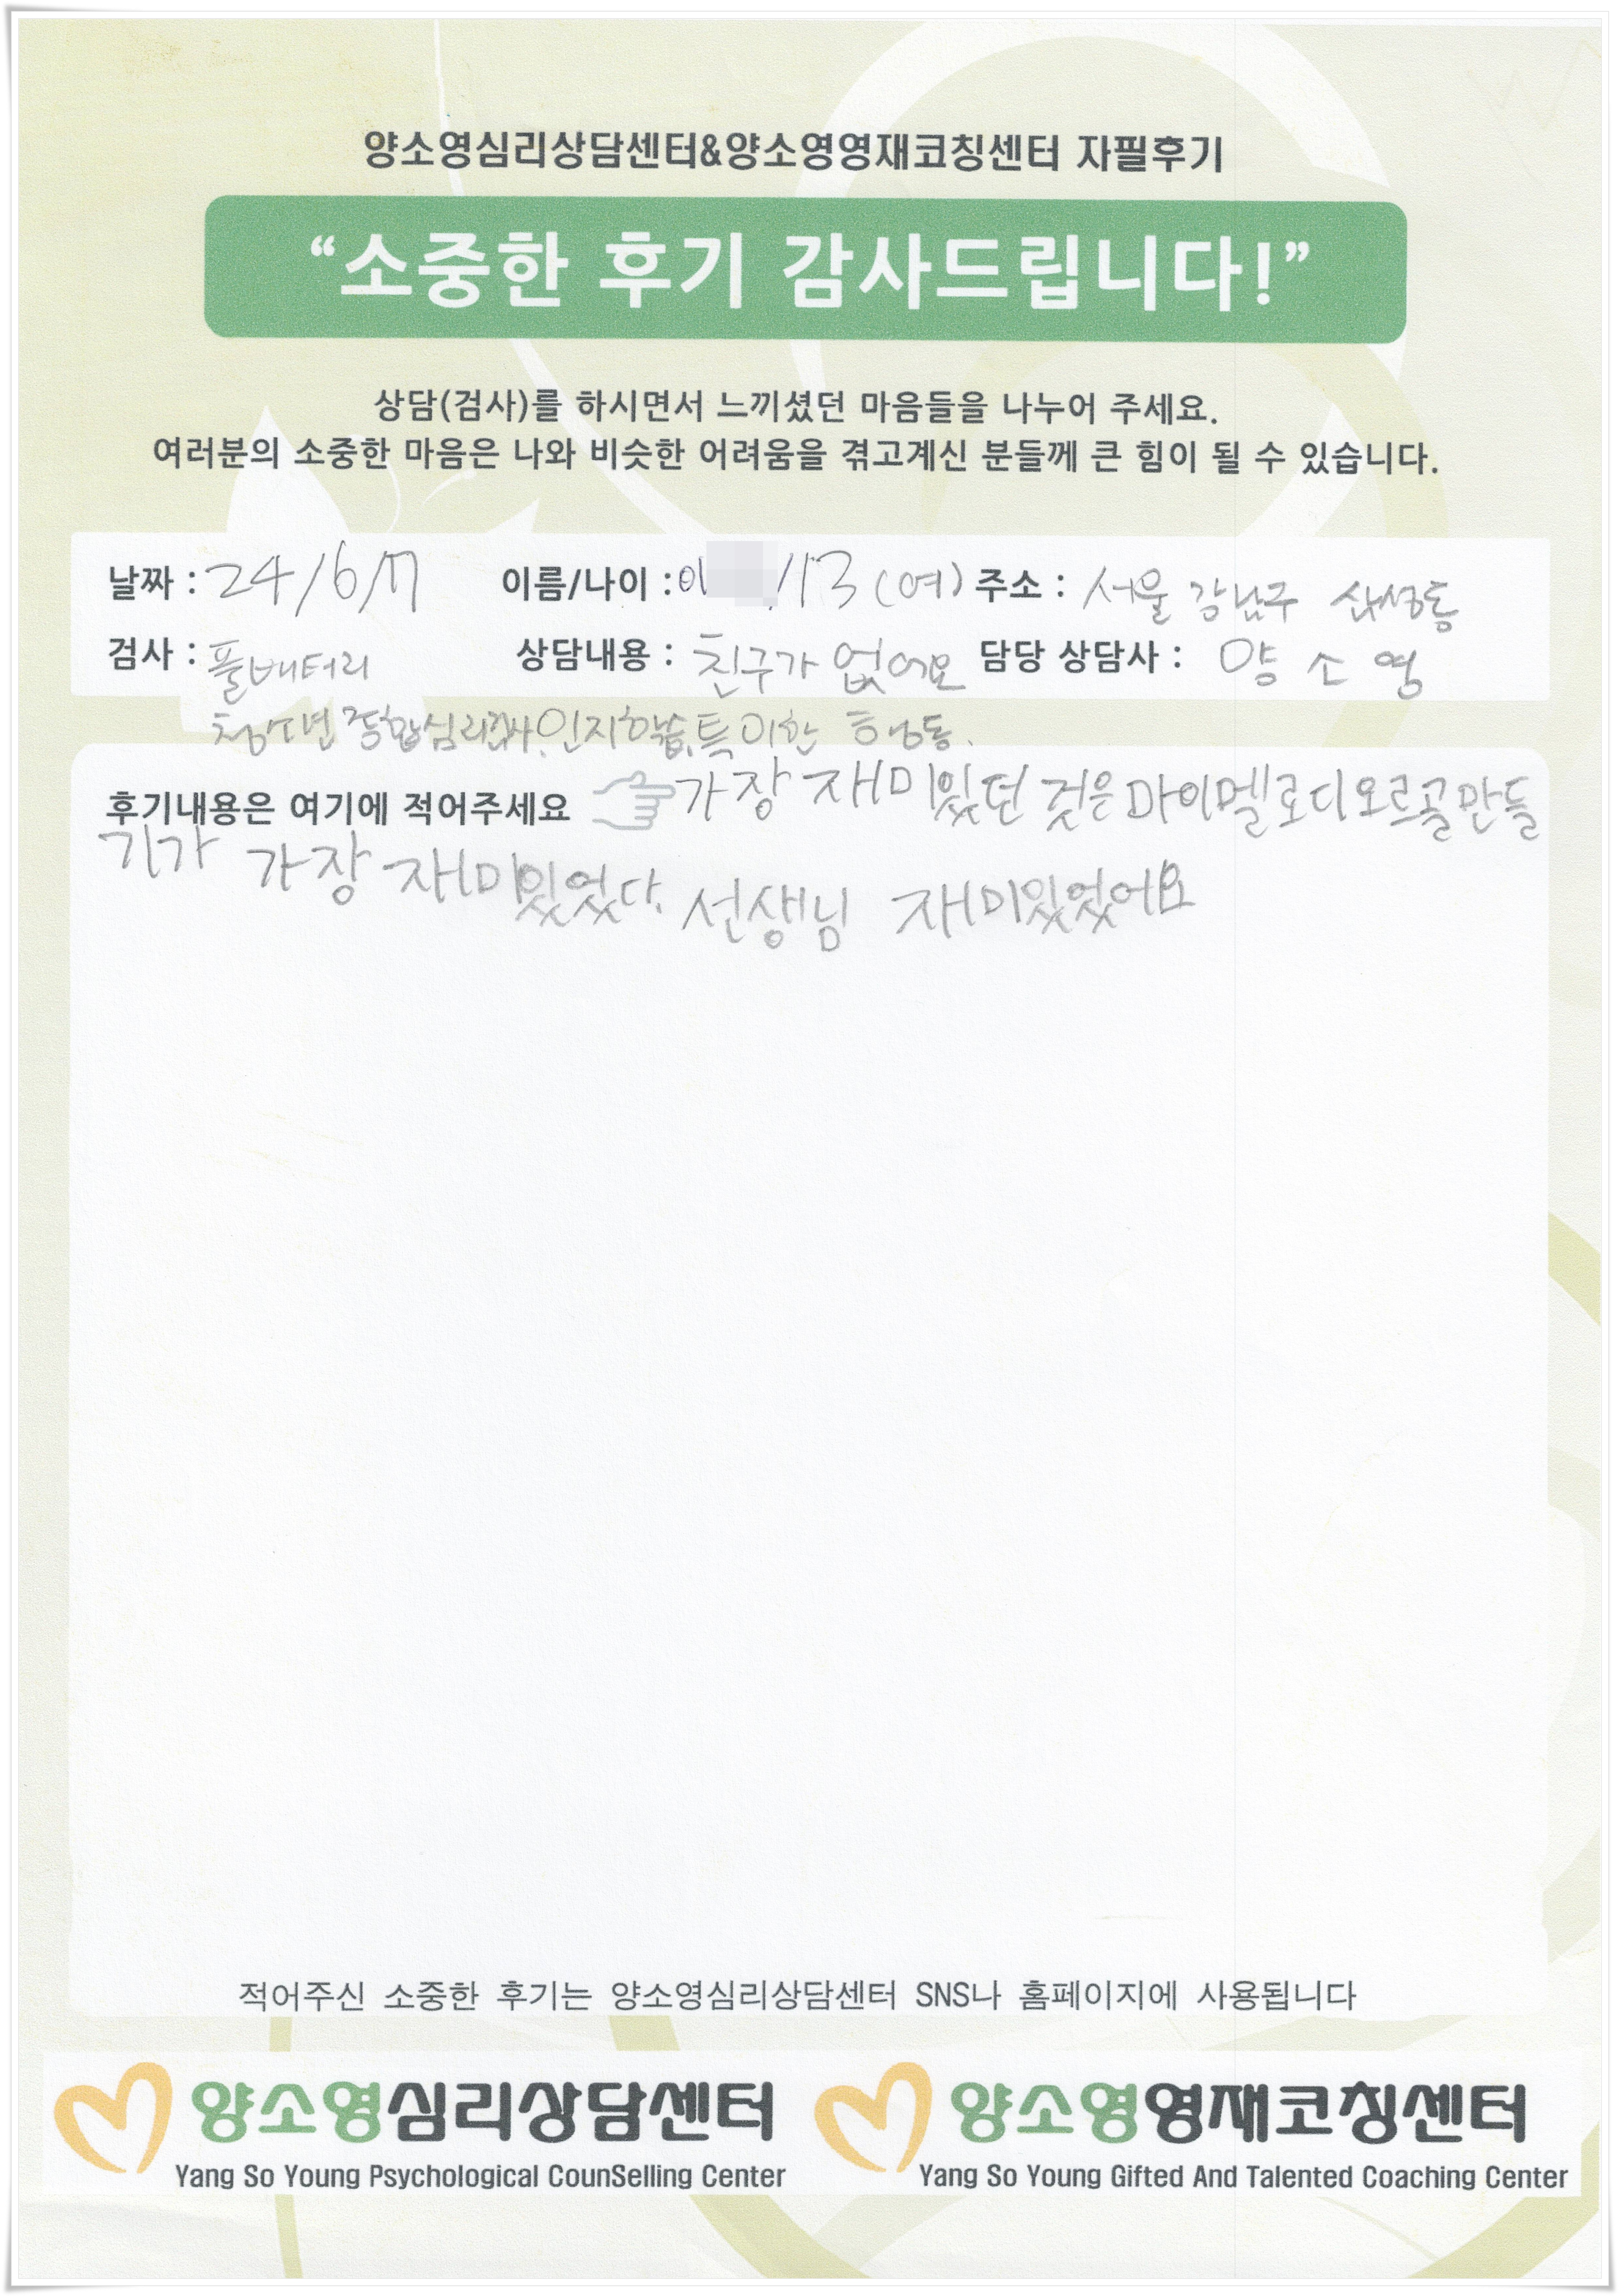 양소영심리상담센터&양소영영재코칭센터 자필후기
“소중한 후기 감사드립니다!”
상담(검사)를 하시면서 느끼셨던 마음들을 나누어 주세요.
여러분의 소중한 마음은 나와 비슷한 어려움을 겪고계신 분들께 큰 힘이 될 수 있습니다.
날짜 : 24/6/7 이름/나이 : 이 /13 (여) 주소 : 서울 강남구 삼성동
검사 : 풀배터리 상담내용 : 친구가 없어요 담당 상담사 : 양 소 영
청소년 종합심리검사, 인지학습, 특이한 행동.
후기내용은 여기에 적어주세요 가장 재미있던 것은 마이멜로디오르골만들
기가 가장 재미있었다. 선생님 재미있었어요
적어주신 소중한 후기는 양소영심리상담센터 SNS나 홈페이지에 사용됩니다
양소영심리상담센터 양소영영재코칭센터
Yang So Young Psychological CounSelling Center Yang So Young Gifted And Talented Coaching Center